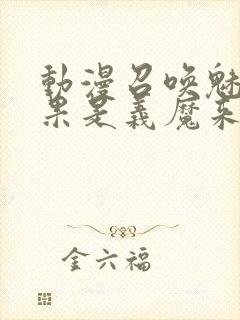 動漫召喚魅
果是義魔來
金六福